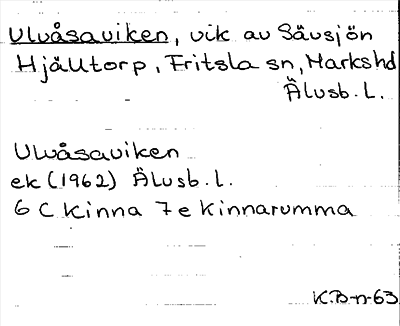 Ulvåsaviken, vik av Sävsjön
Hjälltorp, Fritsla sn, Markshd
Älvsb. L.
Ulvåsaviken
ek (1962) Älvsb. L.
6 C Kinna 7 e Kinnarumma
K.B-n-63